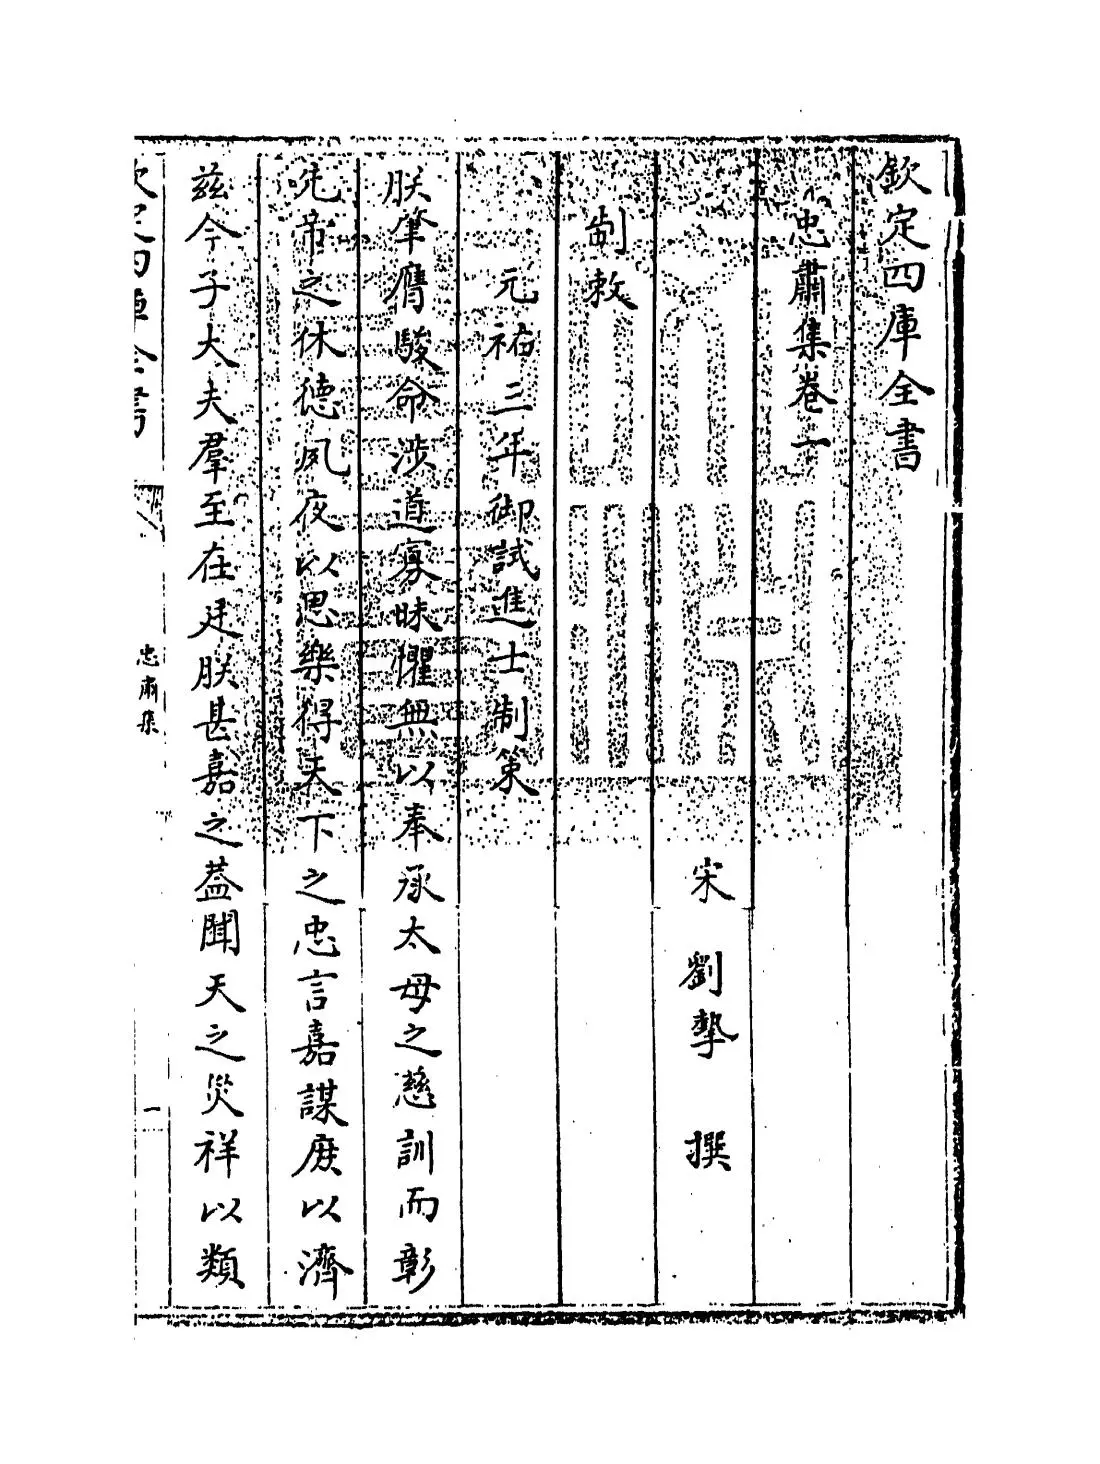 欽定四庫全書
忠肅集卷一
宋 劉摯 撰
制敕
元祐三年御試進士制策
朕肇膺駿命涉道寡昧懼無以奉承太母之慈訓而彰
先帝之休德夙夜以思樂得天下之忠言嘉謀庶以濟
兹今子大夫羣至在廷朕甚嘉之葢聞天之災祥以類
忠肅集
一